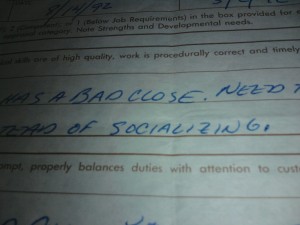 9/14/92
1 (Below Job Requirements) in the box provided for
category. Note Strengths and Developmental needs.
skills are of high quality, work is procedurally correct and timely
HAS A BAD CLOSE. NEED
OF SOCIALIZING.
properly balances duties with attention to